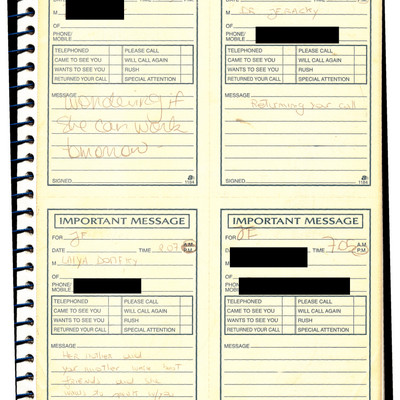 M
OF
PHONE/
MOBILE
TELEPHONED PLEASE CALL
CAME TO SEE YOU WILL CALL AGAIN
WANTS TO SEE YOU RUSH
RETURNED YOUR CALL SPECIAL ATTENTION
MESSAGE
Wondering if
she can work
tomorrow
SIGNED
1184
M DR
OF
PHONE/
MOBILE
TELEPHONED PLEASE CALL
CAME TO SEE YOU WILL CALL AGAIN
WANTS TO SEE YOU RUSH
RETURNED YOUR CALL SPECIAL ATTENTION
MESSAGE
Returning your call
SIGNED
1184
IMPORTANT MESSAGE
FOR JE
DATE TIME 207 A.M. P.M.
M
OF
PHONE/
MOBILE
TELEPHONED PLEASE CALL
CAME TO SEE YOU WILL CALL AGAIN
WANTS TO SEE YOU RUSH
RETURNED YOUR CALL SPECIAL ATTENTION
MESSAGE
Her mother and
your mother were best
friends and she
wants to speak w/you
IMPORTANT MESSAGE
FOR JE
TIME A.M. P.M.
M
OF
PHONE/
MOBILE
TELEPHONED PLEASE CALL
CAME TO SEE YOU WILL CALL AGAIN
WANTS TO SEE YOU RUSH
RETURNED YOUR CALL SPECIAL ATTENTION
MESSAGE